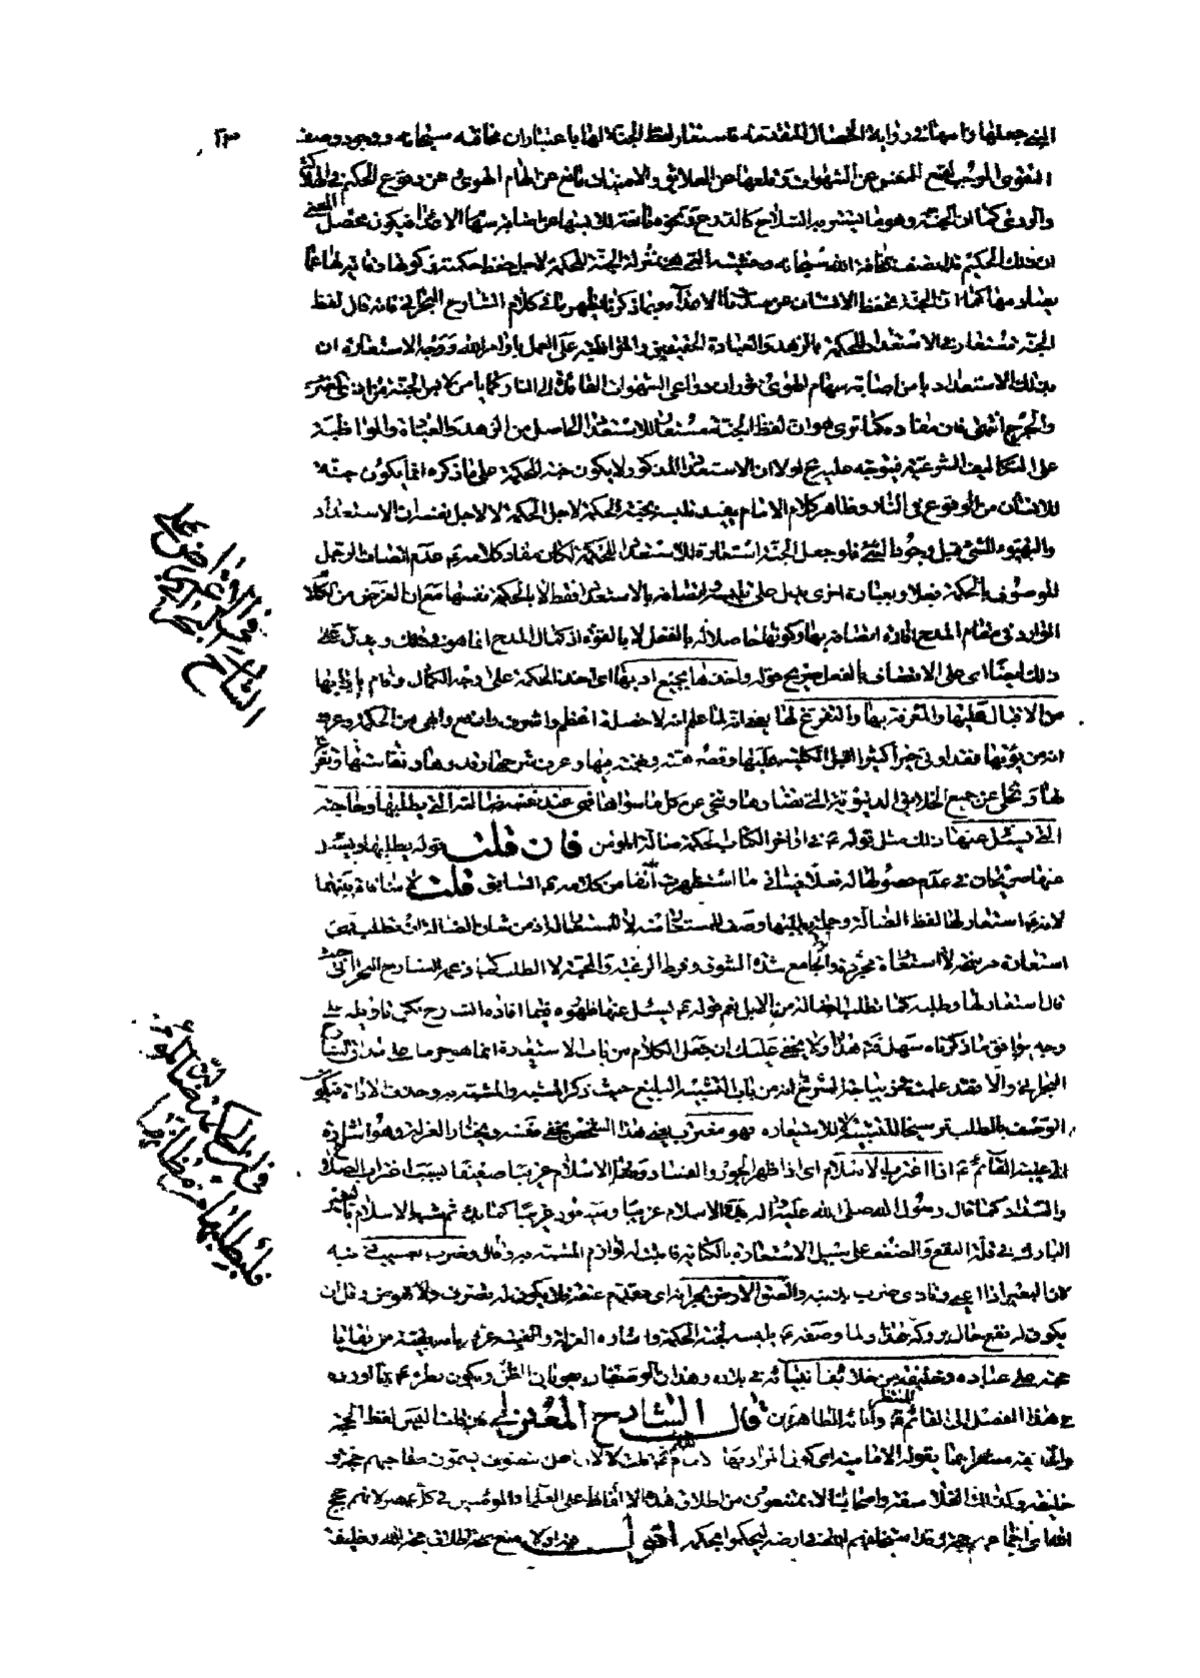 ٢٣٠
التي جعلها رأسها في رواية الخصال المتقدمة فاستعار لفظ الجنة لها باعتبار ان مخافته سبحانه ووجود وصف
التقوى الموجب لقمع النفس عن الشهوات وقلعها عن العلائق والامنيات مانع عن الهام الهوى عن وقوع الحكيم في الهلاكة
والردى كما ان الجنة وهو ما يستتر به السلاح كالدرع ونحوه مانعة للابسها عن اصابة سهام الاعداء فيكون محصل المعنى
ان ذلك الحكيم قد اتصف بمخافة الله سبحانه وخشيته التي هي بمنزلة الجنة للحكمة لاجل حفظ حكمته وكونها وقاية لها عما
يضادها كما ان الجنة تحفظ الانسان عن صدمات الاعداء وبما ذكرنا ظهر ما في كلام الشارح البحراني فانه قال لفظ
الجنة مستعار في الاستعداد للحكمة بالزهد والعبادة الحقيقيين والمواظبة على العمل باوامر الله ووجه الاستعارة ان
بذلك الاستعداد يأمن اصابة سهام الهوى وثوران دواعي الشهوات القائدة الى النار كما يأمن لابس الجنة من اذى الضرب
والجرح انتهى فان مفاده كما ترى هو ان لفظ الجنة مستعار للاستعداد الحاصل من الزهد والعبادة والمواظبة
على التكاليف الشرعية فيتوجه عليه ح اولا ان الاستعداد المذكور لا يكون جنة للحكمة على ما ذكره انما يكون جنة
للانسان من الوقوع في النار وظاهر كلام الامام يفيد تلبسه بجنة الحكمة لاجل الحكمة لا لاجل نفسه ان الاستعداد
والتهيؤ للشيء قبل وجود الشيء فلو جعل الجنة استعارة للاستعداد للحكمة لكان مفاد كلامه ع عدم اتصاف الرجل
الموصوف بالحكمة فعلا وبعبارة اخرى يدل على اتصافه بالاستعداد فقط لا بالحكمة نفسها مع ان الغرض من الكلام
الوارد في مقام المدح افادة اتصافه بها وكونها حاصلة له بالفعل لا بالقوة اذ كمال المدح انما هو في ذلك ويدل على
ذلك ايضا اي على الاتصاف بالفعل صريح قوله واخذها بجميع ادبها اي اخذ الحكمة على وجه الكمال وقام بآدابها
من الاقبال عليها والمعرفة بها والتفرغ لها يعني انه لما علم انه لا خصلة اعظم واشرف وارفع وابهى من الحكمة وعرف
انه من يؤتها فقد اوتي خيرا كثيرا اقبل الكلية عليها وقصر همته ونهمته فيها وعرف شرفها وقدرها ونفاستها وتفرغ
لها وتخلى عن جميع العلايق الدنيوية التي تضادها وتنحى عن كل ما سواها فهي عند نفسه ضالته التي يطلبها وحاجته
التي يسئل عنها ذلك مثل قوله ع في اواخر الكتاب الحكمة ضالة المؤمن فان قلت قوله يطلبها ويسئل
عنها صريحان في عدم حصولها له فعلا فينافي ما استظهرت آنفا من كلامه ع السابق قلت لا منافاة بينهما
لانه ع استعار لها لفظ الضالة وجملة يطلبها وصف للمستعار منه لا للمستعار له اذ من شان الضالة ان تطلب فهي
استعارة مرشحة لا استعارة مجردة والجامع شدة الشوق وفرط الرغبة والمحبة لا الطلب كما زعمه الشارح البحراني حيث
قال استعار لها وطلبه كما تطلب الضالة من الابل نعم قوله ع يسئل عنها ظهوره فيما افاده الشارح يمكن تاويله على
وجه يوافق ما ذكرناه سهل ثم هذا ولا يخفى عليك ان جعل الكلام من باب الاستعارة انما هو جريا على مذاق الشارح
البحراني والا فقد علمت في ديباجة الشرح انه من باب التشبيه البليغ حيث ذكر المشبه والمشبه به وحذف الاداة فيكون
الوصف بالطلب ترشيحا للتشبيه لا للاستعارة فهو مغترب يعني هذا الشخص يخفي نفسه ويختار العزلة وهو اشارة
الى غيبة القائم ع اذا اغترب الاسلام اي اذا ظهر الجور والفساد وصار الاسلام غريبا ضعيفا بسبب اغتراب الصلاح
والسداد كما قال رسول الله صلى الله عليه وآله بدء الاسلام غريبا وسيعود غريبا كما بدء ثم شبه الاسلام بالبعير
البارك في قلة النفع والضعف على سبيل الاستعارة بالكناية فاثبت له لوازم المشبه به وقال وضرب بعسيب ذنبه
لان البعير اذا اعيى وتاذى ضرب بذنبه والصق الارض بجرانه اي مقدم عنقه فلا يكون له تصرف ولا نهوض وقل ان
يكون له نفع حال بروكه هذا ولما وصفه ع بلبسه لجنة الحكمة واشار الى العزلة والغيبة عرفه بانه بقية من بقايا
حجته على عباده وخليفة من خلائف انبيائه في بلاده وهذان الوصفان يقويان الظن بكون نظره ع بما اورده
في هذا الفصل الى القائم المنتظر ع وآبائه الطاهرين قال الشارح المعتزلي فان قلت اليس لفظ الحجة
والخليفة مشعرا بما يقوله الامامية اي كون المراد بها الامام القائم ع قلت لا لان اهل التصوف يسمون صاحبهم حجة و
خليفة وكذلك الفلاسفة واصحابنا لا يمتنعون من اطلاق هذه الالفاظ على العلماء والمؤمنين في كل عصر لانهم حجج
الله اي اجماعهم حجة وقد استخلفهم الله في ارضه ليحكموا بحكمه اقول وفيه اولا منع صحة اطلاق حجة الله وخليفة
في الاعتراض على الشارح البحراني
في ان الحكمة ضالة المؤمن فليطلبها من مظانها